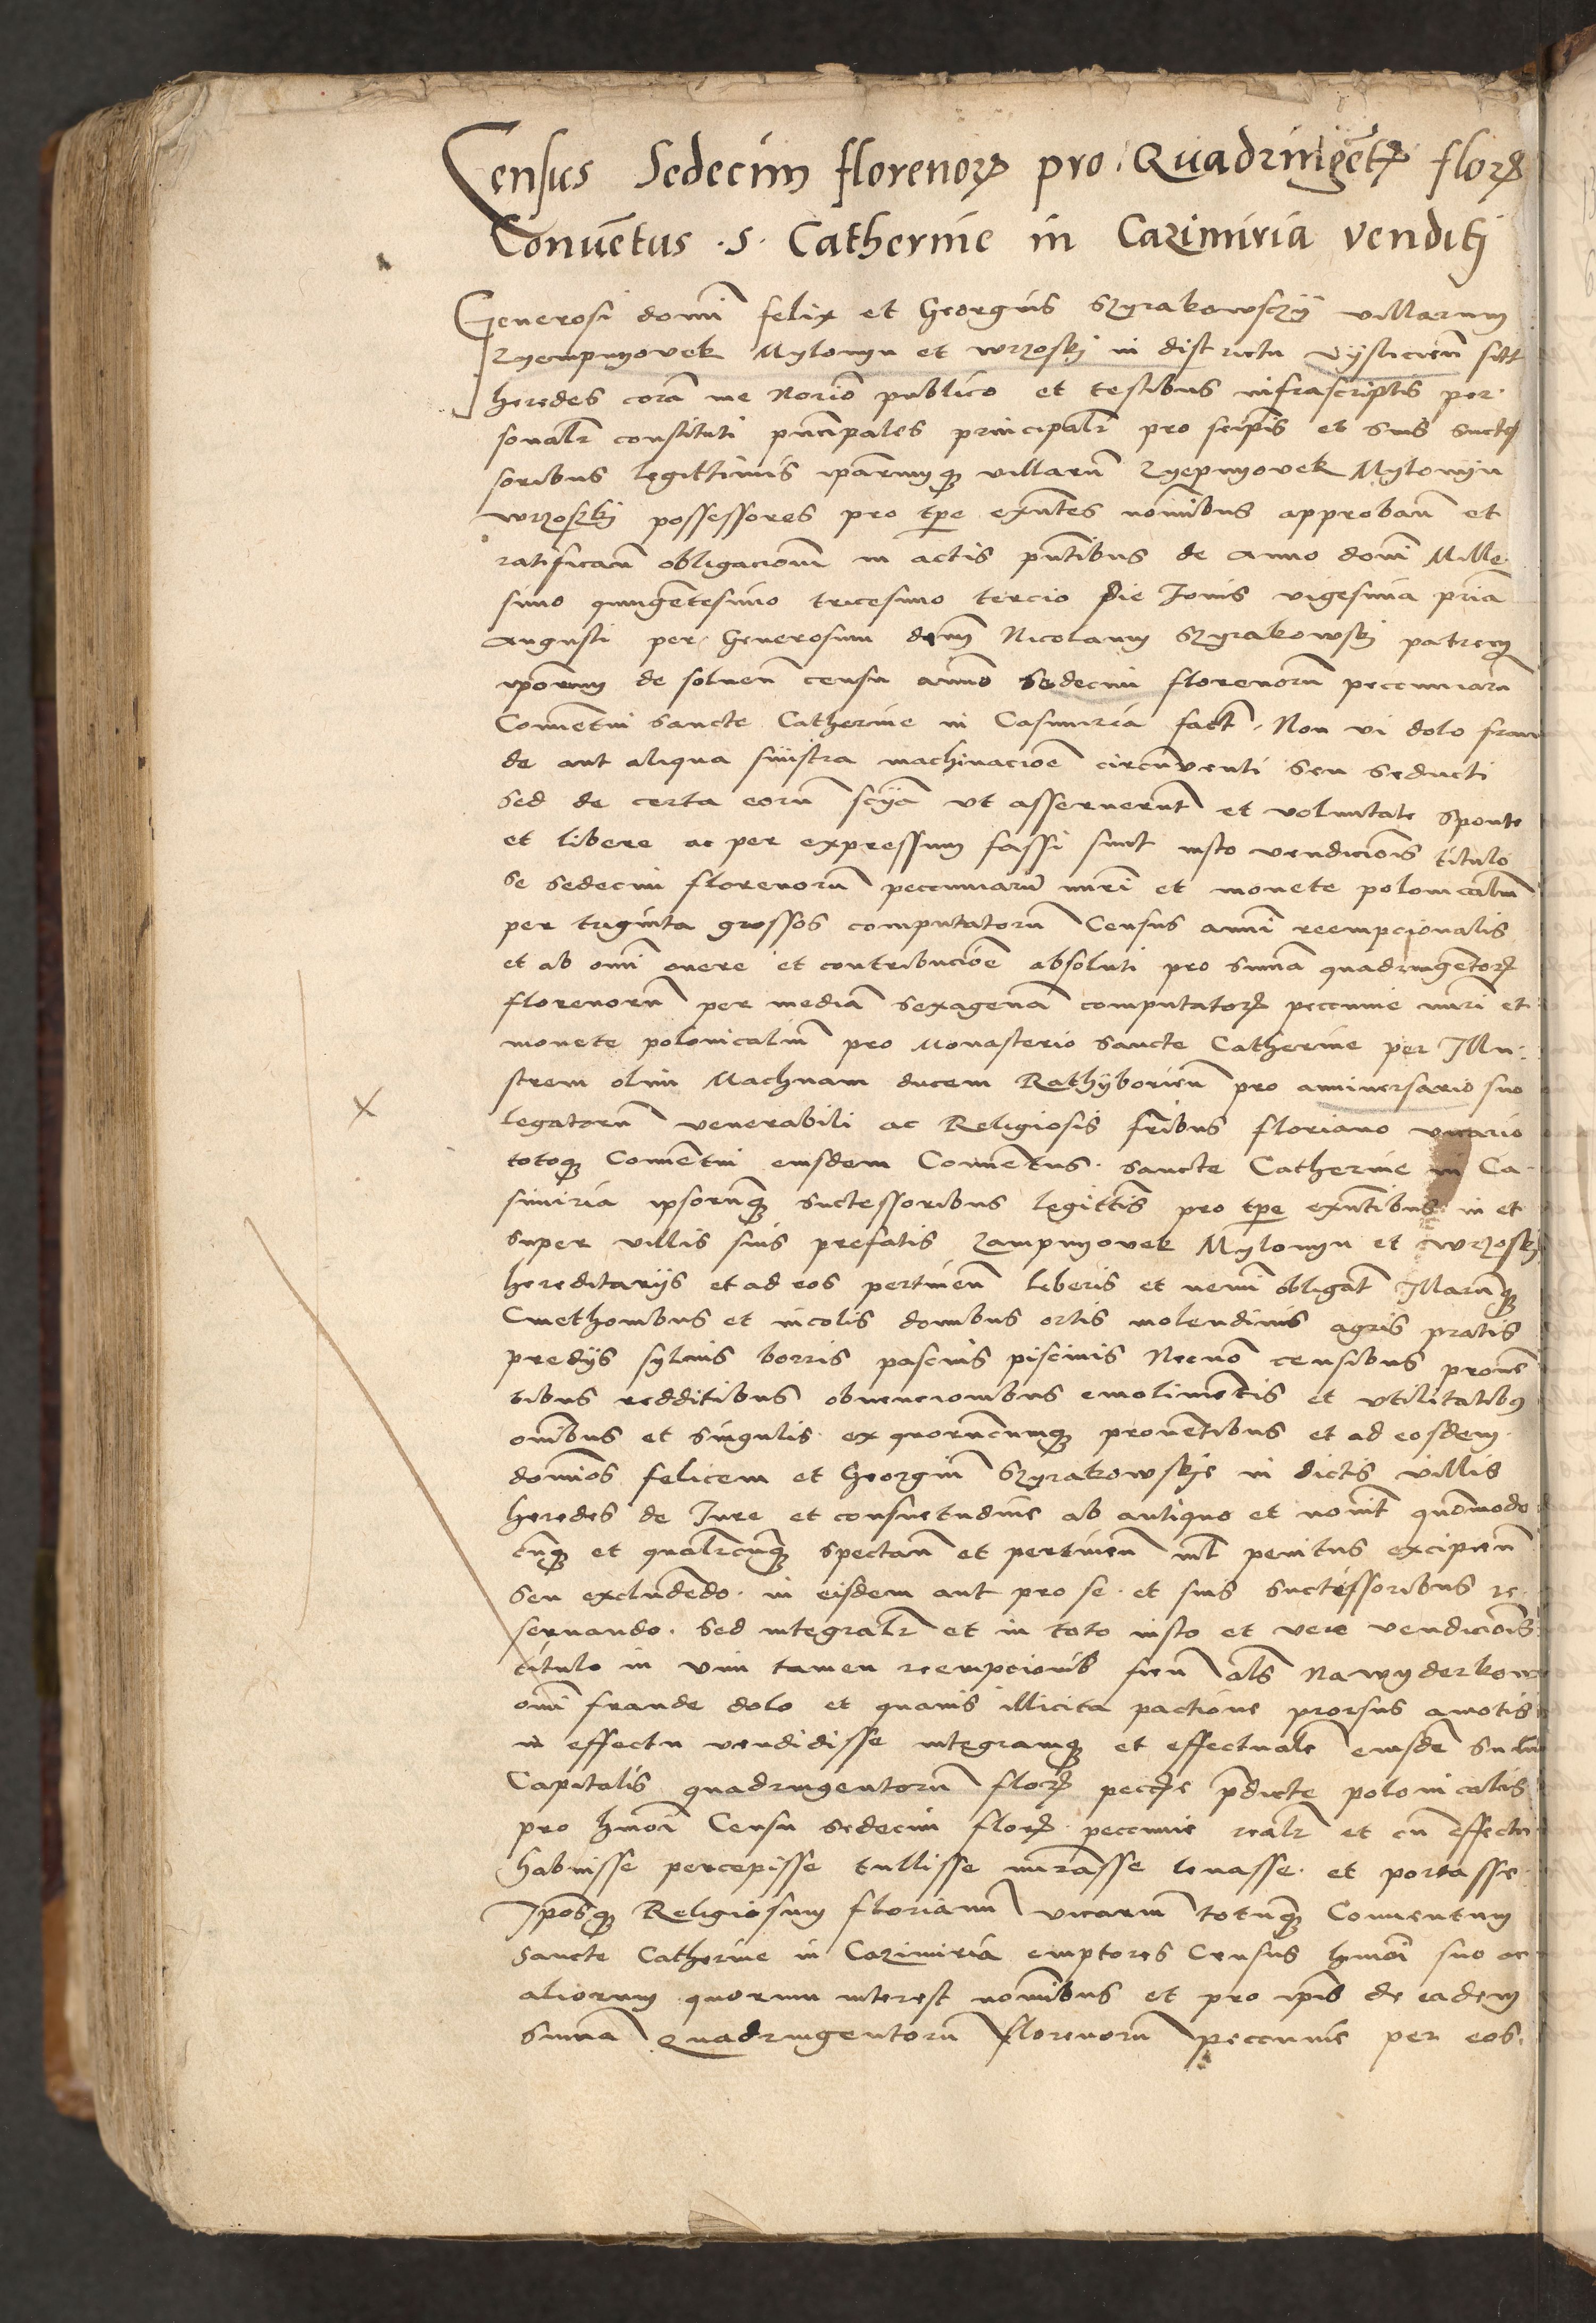 Census Sedecim florenorꝝ pro Quadringētꝝ florꝝ
Conuētus .S. Catherine in Cazimiria venditi
Generosi domī felix et Georgius Szyrakowsczy villarum
Zyempnyovek Mylomyn et Wrzoski in districtu Vysliciēn
heredes corā me Norio publico et testibus infrascriptis per
sonalr constituti pncipales principalr pro seipis et suis succes
soribus legittimis ipārumqꝫ villarū Zyepnyovek Mylomyn
Wrzoszki possessores pro tpe exntes nomibus approbaīn et
ratificaīn obligacionē in actis pntibus de Anno domī Mille
simo quingētesimo tricesimo tercio die Jouis vigesima pria
Augusti per Generosum dnm Nicolaum Szyrakowski patrem
iporum de soluēn censu annuo sedecim florenorū pecuniarū
Conuētui sancte Catherine in Casimiria fact. Non vi dolo frau
de aut aliqua sinistra machinacioē circūuenti seu seducti
sed de certa eorū scia ut asseruerūt et voluntate sponte
et libere ac per expressum fassi sunt iusto vendicionis titulo
se sedecim florenorū pecuniarū nūri et monete polonicalium
per triginta grossos computatorū Census anni reempcionalis
et ab omī onere et contribucioē absoluti pro suma quadringētorꝝ
florenorū per mediā sexagenā computatorꝝ pecunie nūri et
monete polonicaliū pro Monasterio sancte Catherine per Illu
strem olim Machnam ducem Rathyboriēn pro anniuersario suo
legatorū venerabili ac Religiosis fribus floriano vicario
totoqꝫ Conuētui eiusdem Conuentus sancte Catherine in Ca
simiria ipsorūqꝫ successoribus legittis pro tpe exntibus in et
super villis suis prefatis Zampnyovek Mylomyn et Wrzoski
hereditariis et ad eos pertineñ liberis et nemī obligat Illarūqꝫ
Cmethonibus et incolis domibus ortis molendinis agris pratis
predys syluis borris pascuis piscinis Necnō censibus prouē
tibus redditibus obuencionibus emolimētis et vtilitatibus
omībus et singulis ex quorumcumqꝫ prouētibus et ad eosdem
dominos felicem et Georgiū Szyrakowskie in dictis villis
heredes de Iure et consuetudine ab antiquo et nouit quōmodo
cūqꝫ et qualrcūqꝫ spectañ et pertineñ nil penitus excipieñ
seu excludēdo in eisdem aut pro se et suis successoribus re
seruando. Sed integralr et in toto iusto et vere vendicionis
titulo in vim tamen reempcionis sieu als Nawyderkow
omī fraude dolo et quauis illicita pactione prorsus amotis
in effectu vendidisse integramqꝫ et effectualē eiusdē
Capitalis quadringentorū florꝝ peccunie pdicte polonicalis
pro hmōi Censu sedecim florꝝ peccunie realr et cū effectu
habuisse percepisse tullisse nūrasse leuasse et portasse
Ipōsqꝫ Religiosum florianū vicariū totūqꝫ Conuentum
Sancte Catherine in Cazimiria emptores Census hmōi suo ac
aliorum quorum interest nomibus et pro ipis de eadem
suma Quadringentorū florenorū peccunie per eos